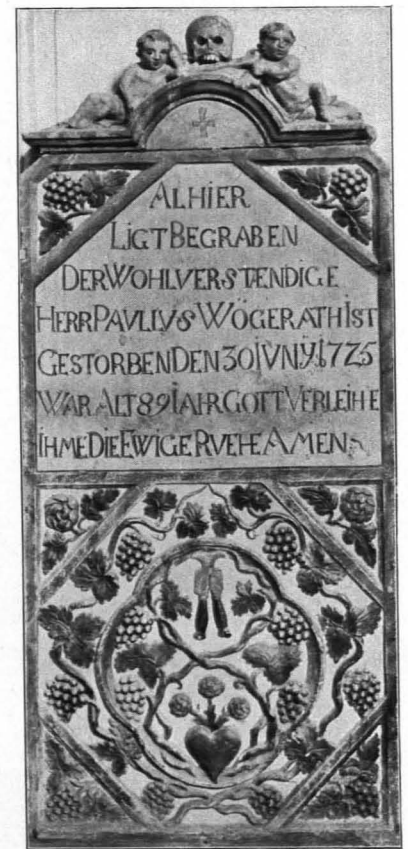 ALHIER
LIGT BEGRABEN
DER WOHLVERSTENDIGE
HERR PAVLIVS WÖGERATH IST
GESTORBEN DEN 30 IVNY 1725
WAR ALT 89 IAHR GOTT VERLEIHE
IHME DIE EWIGE RVEHE AMEN